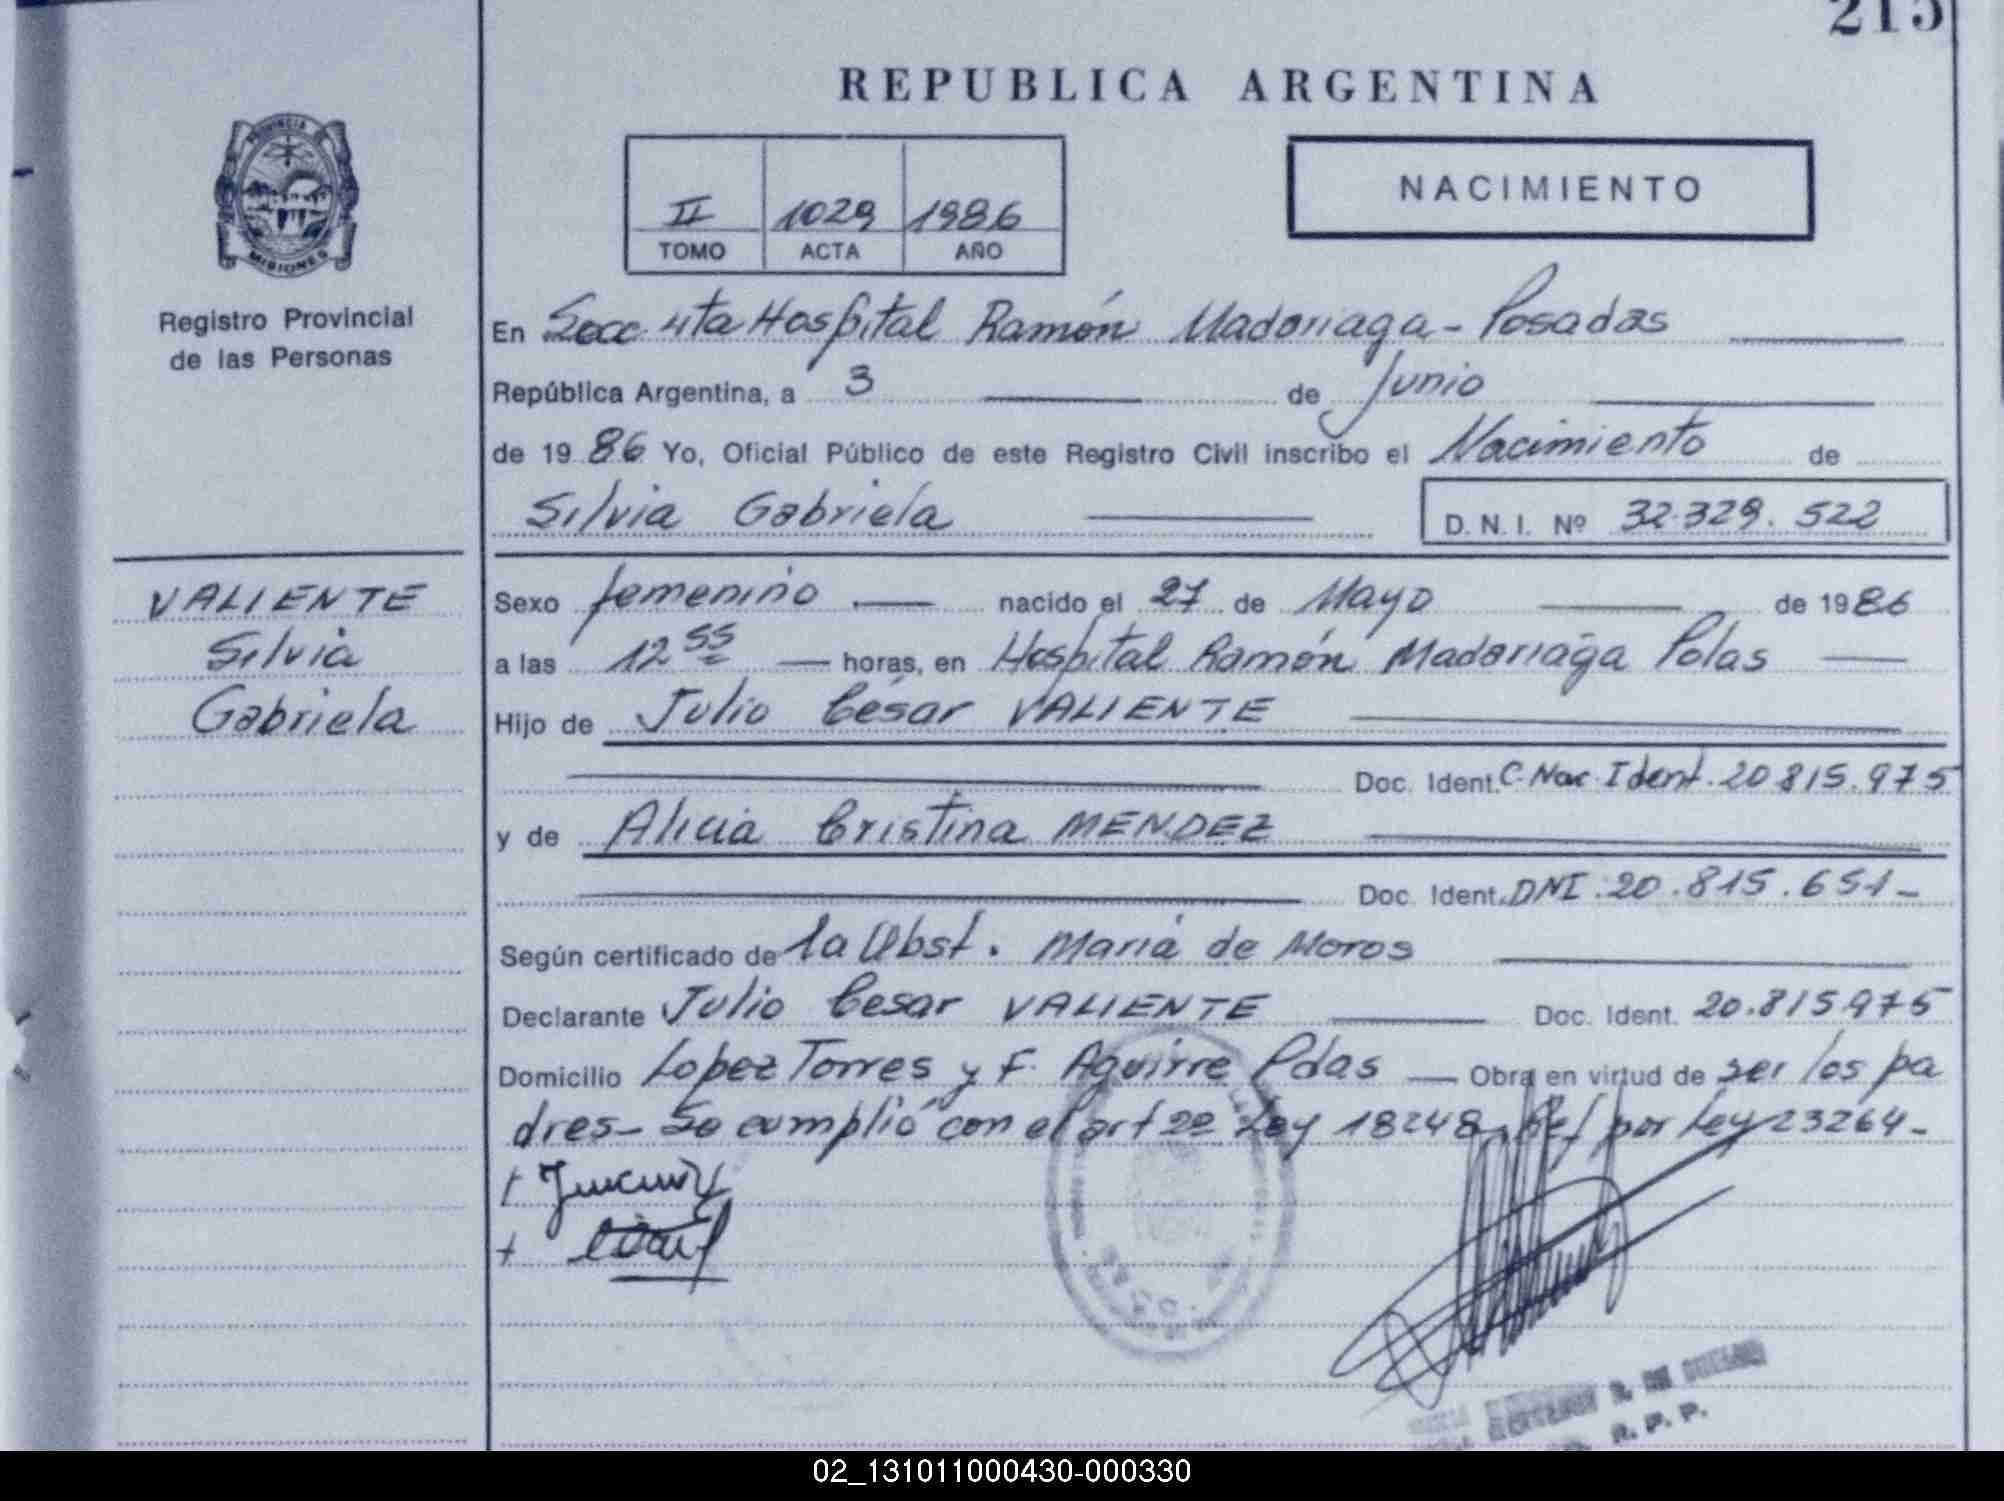 215
REPUBLICA ARGENTINA
PROVINCIA DE
MISIONES
Registro Provincial
de las Personas
II 1029 1986
TOMO ACTA AÑO
NACIMIENTO
En Secc 4ta Hospital Ramón Madariaga - Posadas
República Argentina, a 3 de Junio
de 1986 Yo, Oficial Público de este Registro Civil inscribo el Nacimiento de
Silvia Gabriela D. N. I. Nº 32.329.522
VALIENTE
Silvia
Gabriela
Sexo femenino nacido el 27 de Mayo de 1986
a las 12 55 horas, en Hospital Ramón Madariaga Pdas
Hijo de Julio César VALIENTE
Doc. Ident. C. Nac. Ident. 20 815.975
y de Alicia Cristina MENDEZ
Doc. Ident. DNI. 20.815.651-
Según certificado de la Obst. Maria de Moros
Declarante Julio Cesar VALIENTE Doc. Ident. 20.815975
Domicilio Lopez Torres y F. Aguirre Pdas Obra en virtud de ser los pa
dres- Se cumplió con el art 2º Ley 18248 Ref por Ley 23264-
R. P. P.
02_131011000430-000330